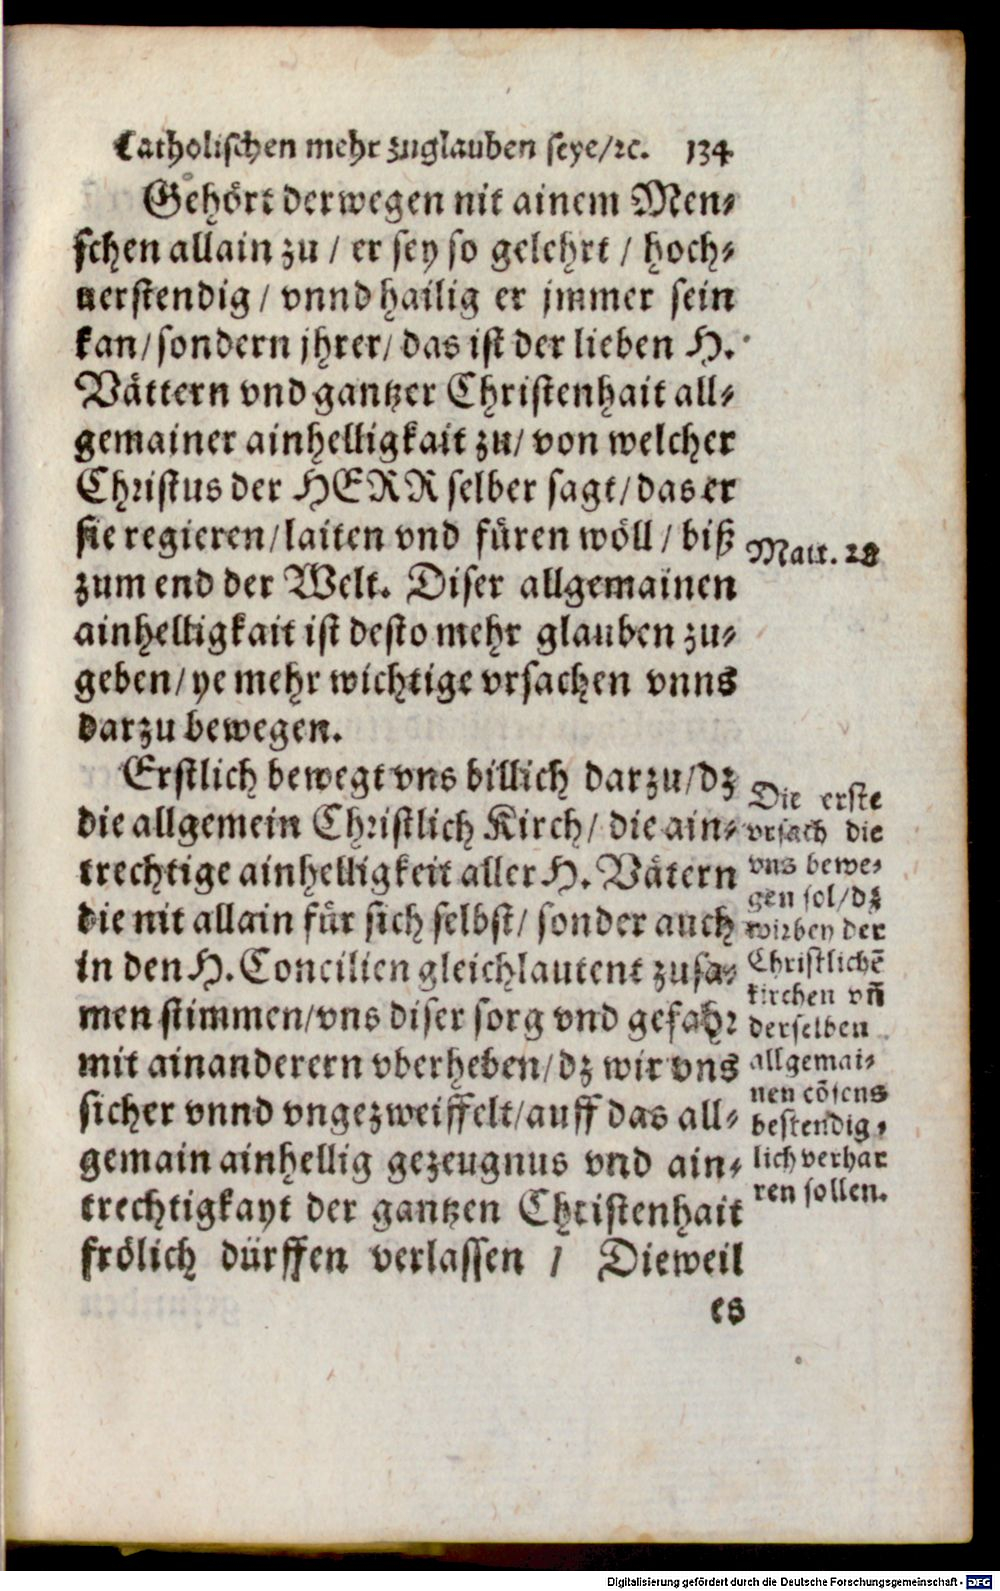 Catholischen mehr zuglauben seye/ꝛc. 134
Gehört derwegen nit ainem Men⸗
schen allain zu / er sey so gelehrt / hoch⸗
uerstendig / vnnd hailig er jmmer sein
kan/sondern jhrer/ das ist der lieben H.
Vättern vnd gantzer Christenhait all⸗
gemainer ainhelligkait zu/ von welcher
Christus der HERR selber sagt/das er
sie regieren/laiten vnd füren wöll / biß
zum end der Welt. Diser allgemainen
ainhelligkait ist desto mehr glauben zu⸗
geben/ye mehr wichtige vrsachen vnns
darzu bewegen.
Matt. 28
Erstlich bewegt vns billich darzu/dz
die allgemein Christlich Kirch/ die ain⸗
trechtige ainhelligkeit aller H. Vätern
die nit allain für sich selbst/ sonder auch
in den H. Concilien gleichlautent zusa⸗
men stimmen/vns diser sorg vnd gefahr
mit ainanderern vberheben/dz wir vns
sicher vnnd vngezweiffelt/auff das all⸗
gemain ainhellig gezeugnus vnd ain⸗
trechtigkayt der gantzen Christenhait
frölich dürffen verlassen / Dieweil
es
Die erste
vrsach die
vns bewe⸗
gen sol/dz
wir bey der
Christlichē
kirchen vñ
derselben
allgemai⸗
nen cōsens
bestendig⸗
lich verhar
ren sollen.
Digitalisierung gefördert durch die Deutsche Forschungsgemeinschaft - DFG